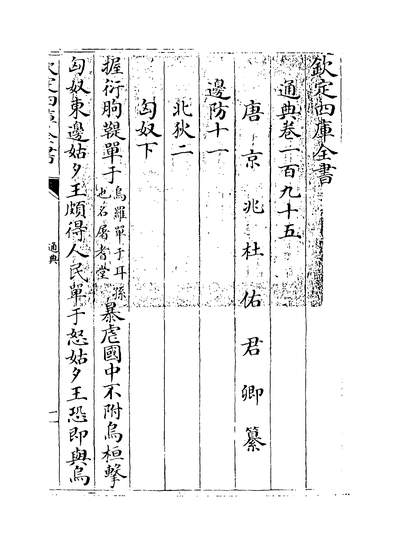 欽定四庫全書
通典卷一百九十五
唐京兆杜佑君卿纂
邊防十一
北狄二
匈奴下
握衍朐鞮單于烏羅單于耳孫也名屠耆堂暴虐國中不附烏桓擊
匈奴東邊姑夕王頗得人民單于怒姑夕王恐即與烏
欽定四庫全書
通典
一